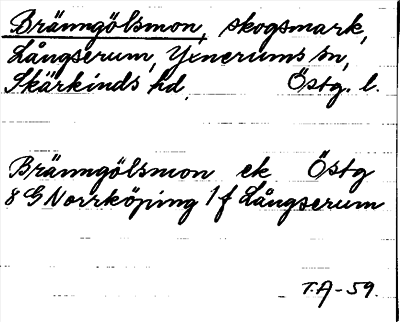 Bränngölsmon, skogsmark,
Långserum, Yxnerums sn,
Skärkinds hd. Östg. l.
Bränngölsmon ek Östg
8 G Norrköping 1 f Långserum
T.A-59.